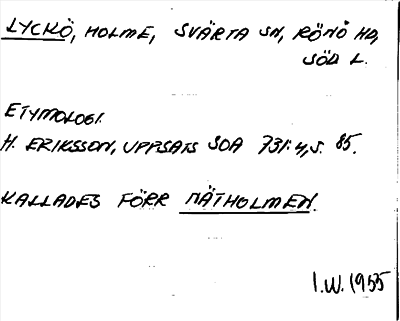 LYCKÖ, HOLME, SVÄRTA SN, RÖNÖ HD,
SÖD L.
ETYMOLOGI.
H. ERIKSSON, UPPSATS SOA 731:4, S. 85.
KALLADES FÖRR MÄTHOLMEN.
I.W. 1955